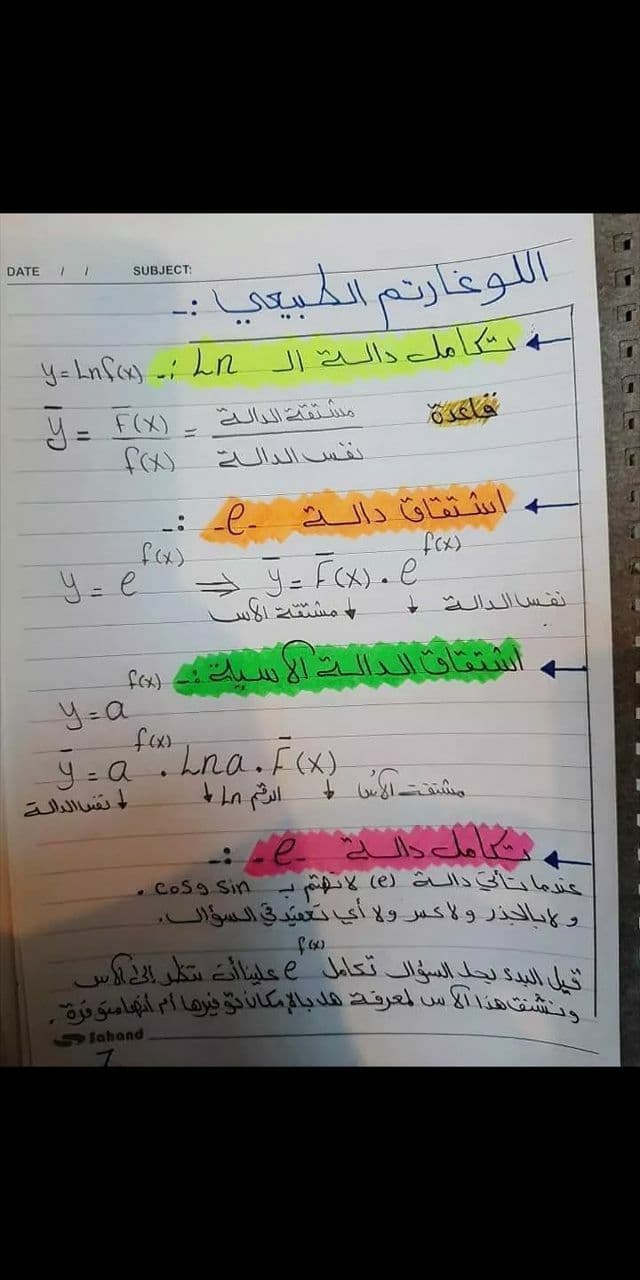 DATE / / SUBJECT:
اللوغارتم الطبيعي :-
تكامل دالة الـ Ln :- y=Lnf(x)
قاعدة
ȳ = F̄(x) / f(x) = مشتقة الدالة / نفس الدالة
اشتقاق دالة -e- :-
y = e^f(x) ⇒ ȳ = F̄(x) . e^f(x)
↓ مشتقة الأس ↓ نفس الدالة
اشتقاق الدالة الأسية :-
y = a^f(x)
ȳ = a^f(x) . Lna . F̄(x)
↓ نفس الدالة ↓ Ln الرقم ↓ مشتقة الأس
تكامل دالة -e- :-
عندما تأتي دالة (e) لا نهتم بـ sin و cos .
ولا بالجذر ولا كسر ولا أي تعقيد في السؤال.
قبل البدء بحل السؤال تكامل e^f(x) علينا أن ننظر إلى الأس
ونشتق هذا الأس لمعرفة هل بالإمكان توفيرها أم أنها متوفرة .
Sahand